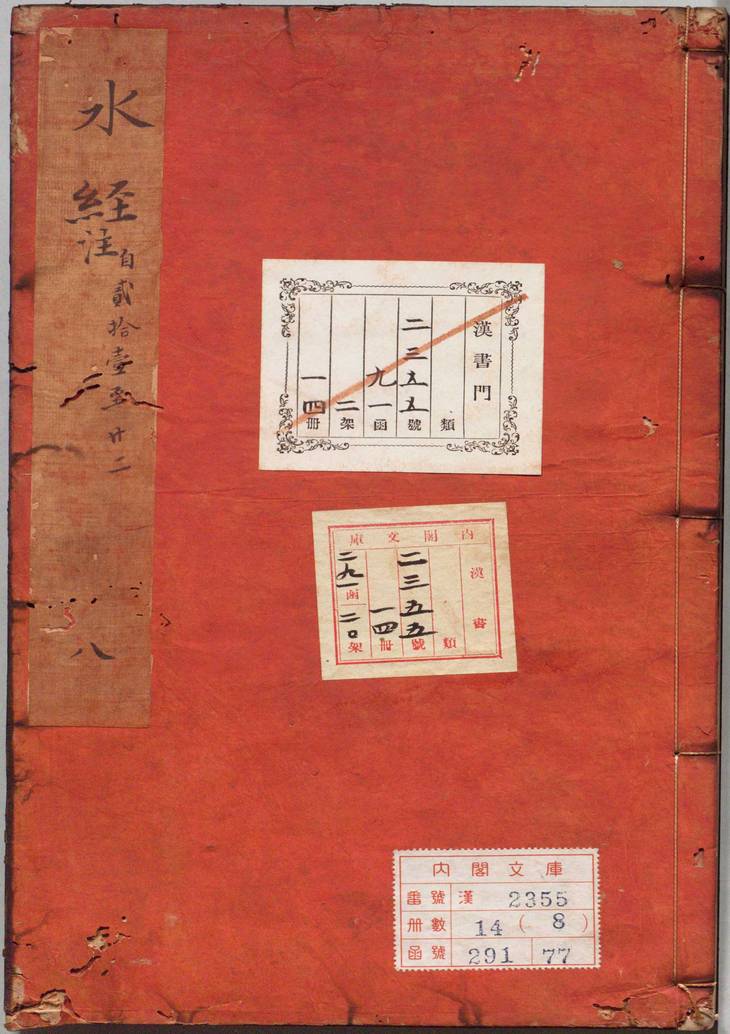 水経註自貳拾壹至廿二
八
漢書門
類
二三五五號
九一函
二架
一四冊
内閣文庫
漢書
類
二三五五號
一四冊
二九一函
二〇架
内閣文庫
番號 漢 2355
冊數 14 ( 8 )
函號 291 77